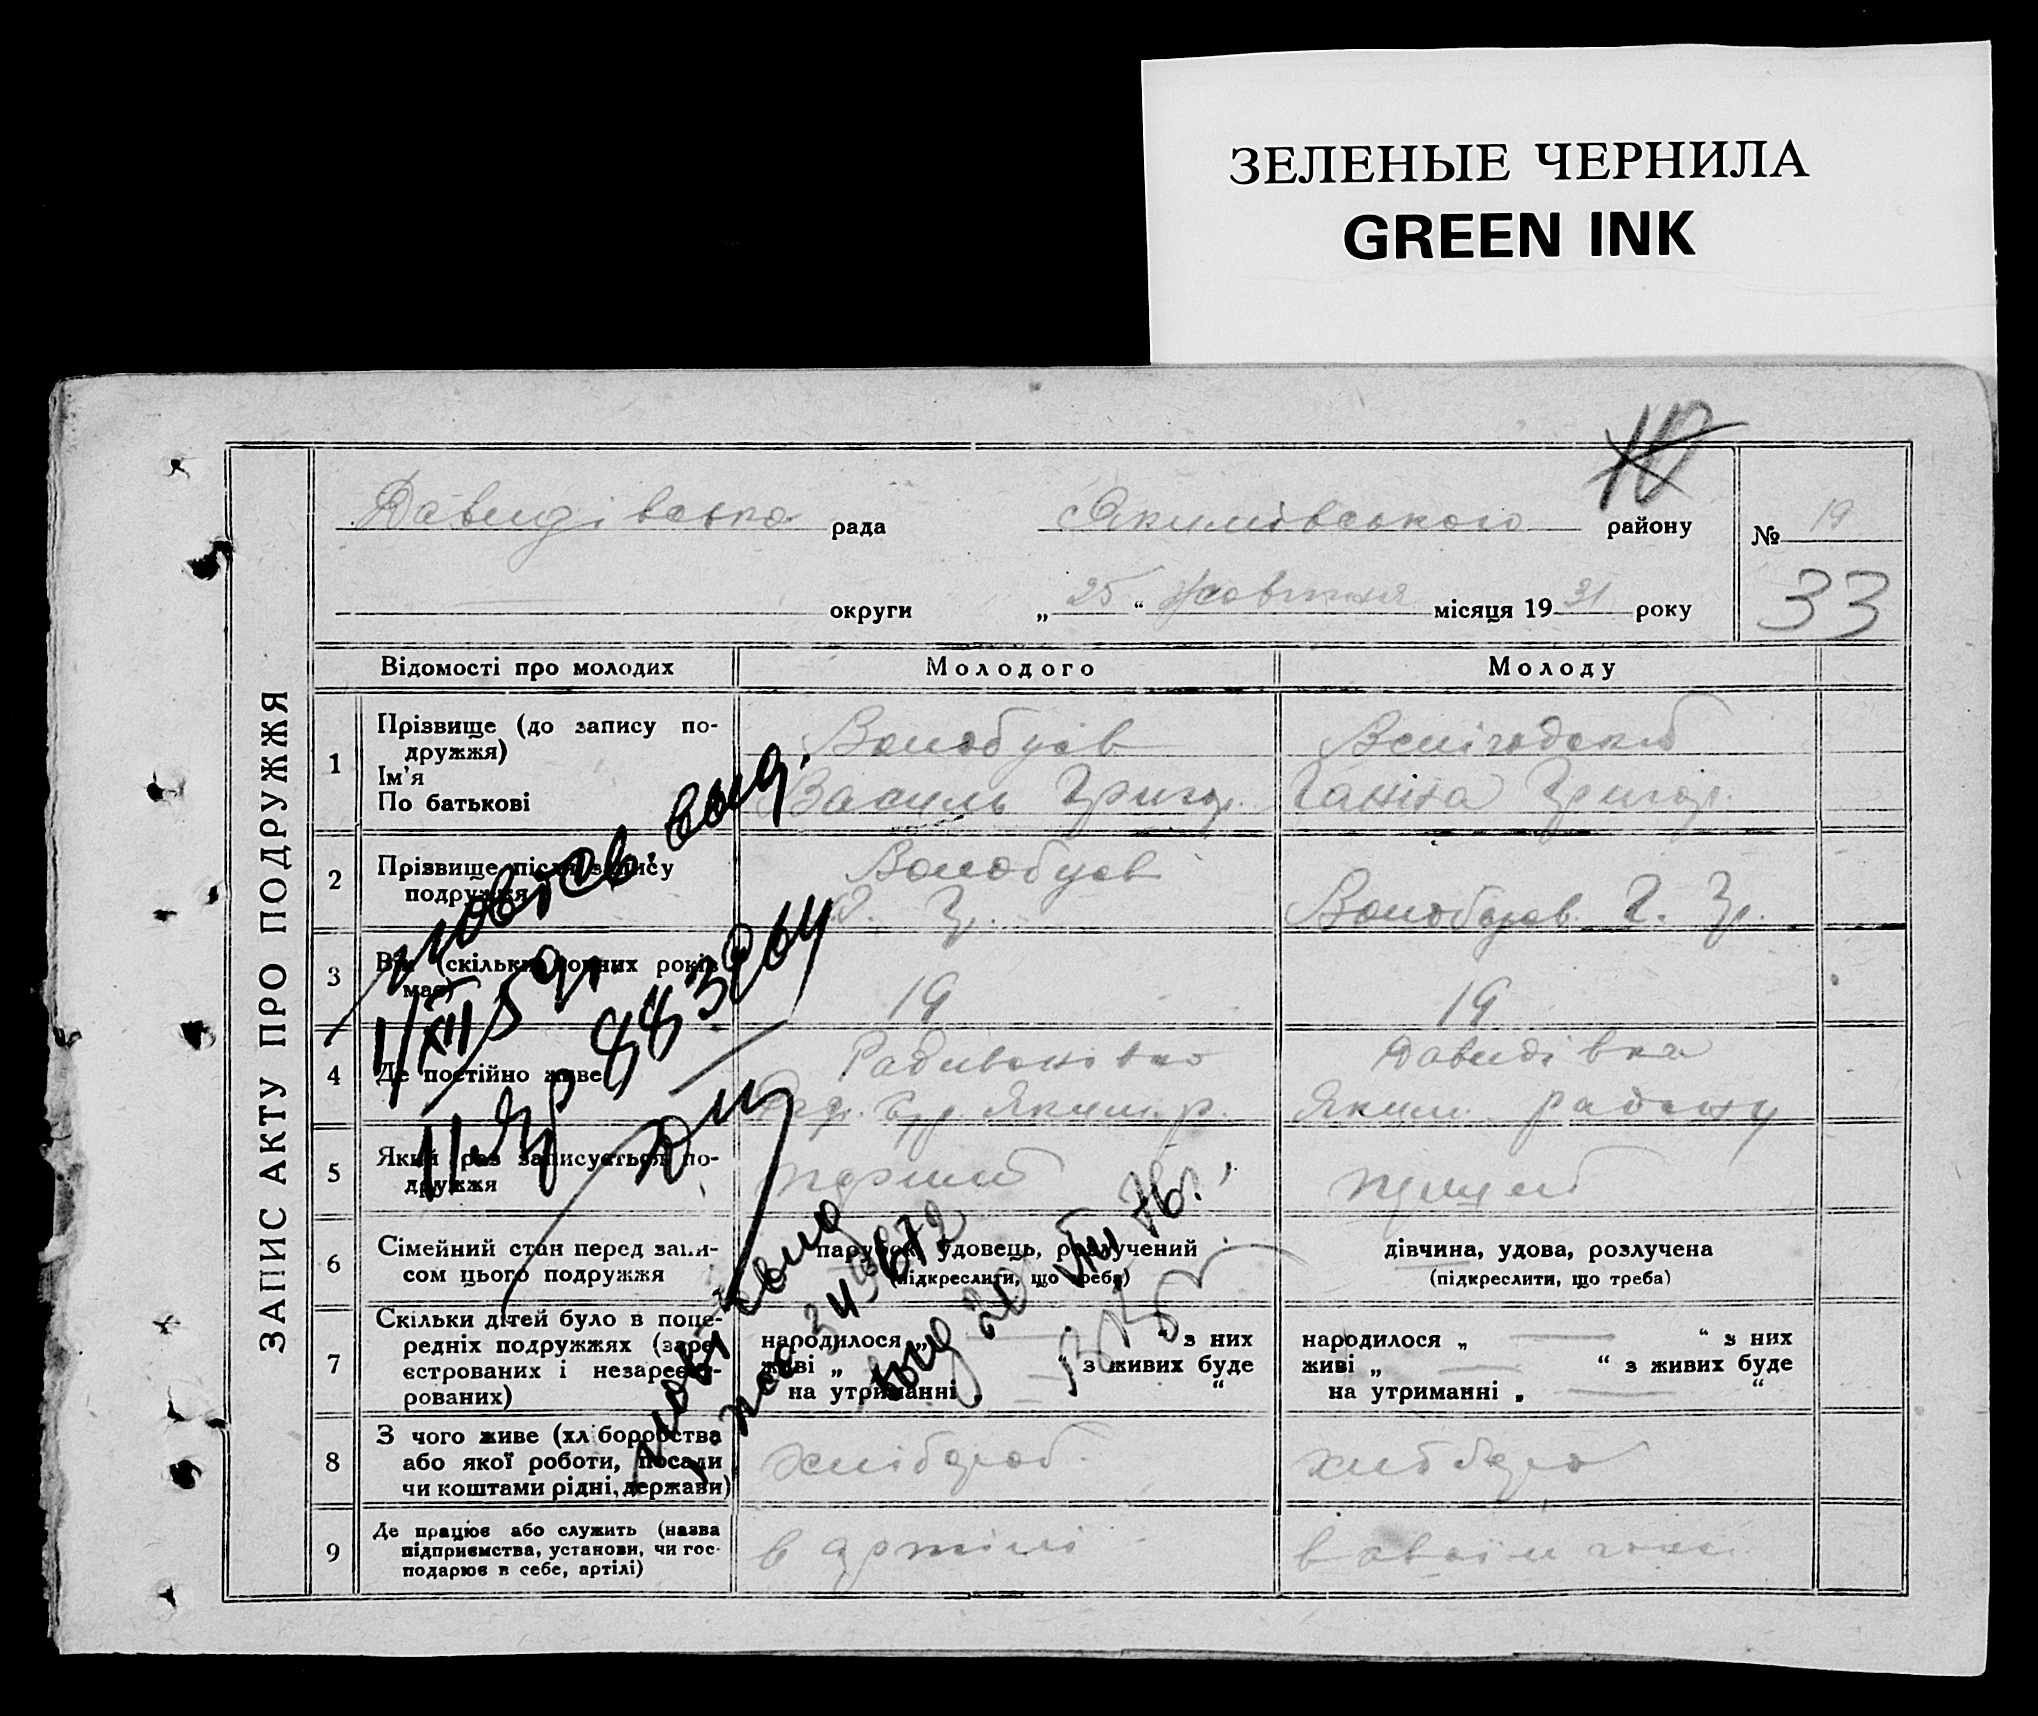 ЗЕЛЕНЫЕ ЧЕРНИЛА
GREEN INK
10
ЗАПИС АКТУ ПРО ПОДРУЖЖЯ
Давидівська рада Якимівського району № 19
округи „ 25 “ жовтня місяця 19 31 року
33
Відомості про молодих Молодого Молоду
1 Прізвище (до запису по-
дружжя)
Ім'я
По батькові
Волобуєв
Василь Григор.
Ганна Григор.
2 Прізвище після запису
подружжя
Волобуєв
В. Гр.
Волобуєв Г. Гр.
3 Вік (скільки повних років
має)
19 19
4 Де постійно живе
Радивонівка
Яким. р.
Давидівка
Яким. району
5 Який раз записується по-
дружжя
перший
перший
6 Сімейний стан перед запи-
сом цього подружжя
парубок, удовець, розлучений
(підкреслити, що треба)
дівчина, удова, розлучена
(підкреслити, що треба)
7 Скільки дітей було в попе-
редніх подружжях (заре-
єстрованих і незареєст-
рованих)
народилося „ “ з них
живі „ “ з живих буде
на утриманні „ “
народилося „ “ з них
живі „ “ з живих буде
на утриманні „ “
8 З чого живе (хліборобства
або якої роботи, посади
чи коштами рідні, держави)
хлібороб.
9 Де працює або служить (назва
підприємства, установи, чи гос-
подарює в себе, артілі)
в артілі
повтсв. выд.
1/XII 59 г.
повт. св-во
343672
выд 20 VIII 76г.